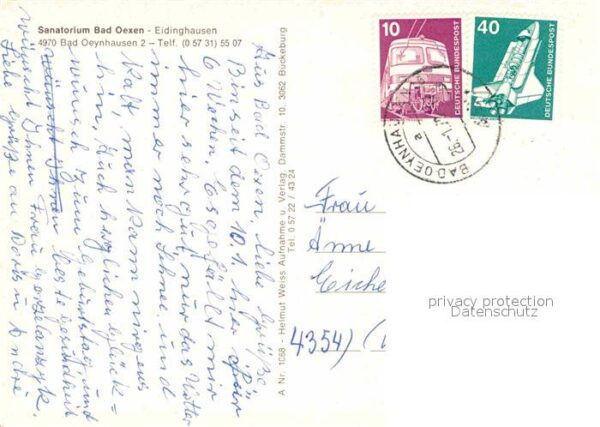 Sanatorium Bad Oexen - Eidinghausen
4970 Bad Oeynhausen 2 – Telf. (0 57 31) 55 07
Aus Bad Oexen, liebe Grüße
Bin seit dem 10.1. hier für
6 Wochen. Es gefällt mir
hier sehr gut, nur das Wetter
immer noch Schnee, und
kalt, man kann nirgens
hin. Auch herzlichen Glück=
wunsch zum Geburtstag und
beste Gesundheit
wünscht Ihnen Frau
Liebe Grüße an Doris u. André
A Nr. 1068 - Helmut Weiss Aufnahme u. Verlag, Dammstr. 10, 3062 Bückeburg
Tel. 0 57 22 / 43 24
10
DEUTSCHE BUNDESPOST
40
DEUTSCHE BUNDESPOST
BAD OEYNHAUSEN
a
Frau
Änne
Eiche
4354)
privacy protection
Datenschutz